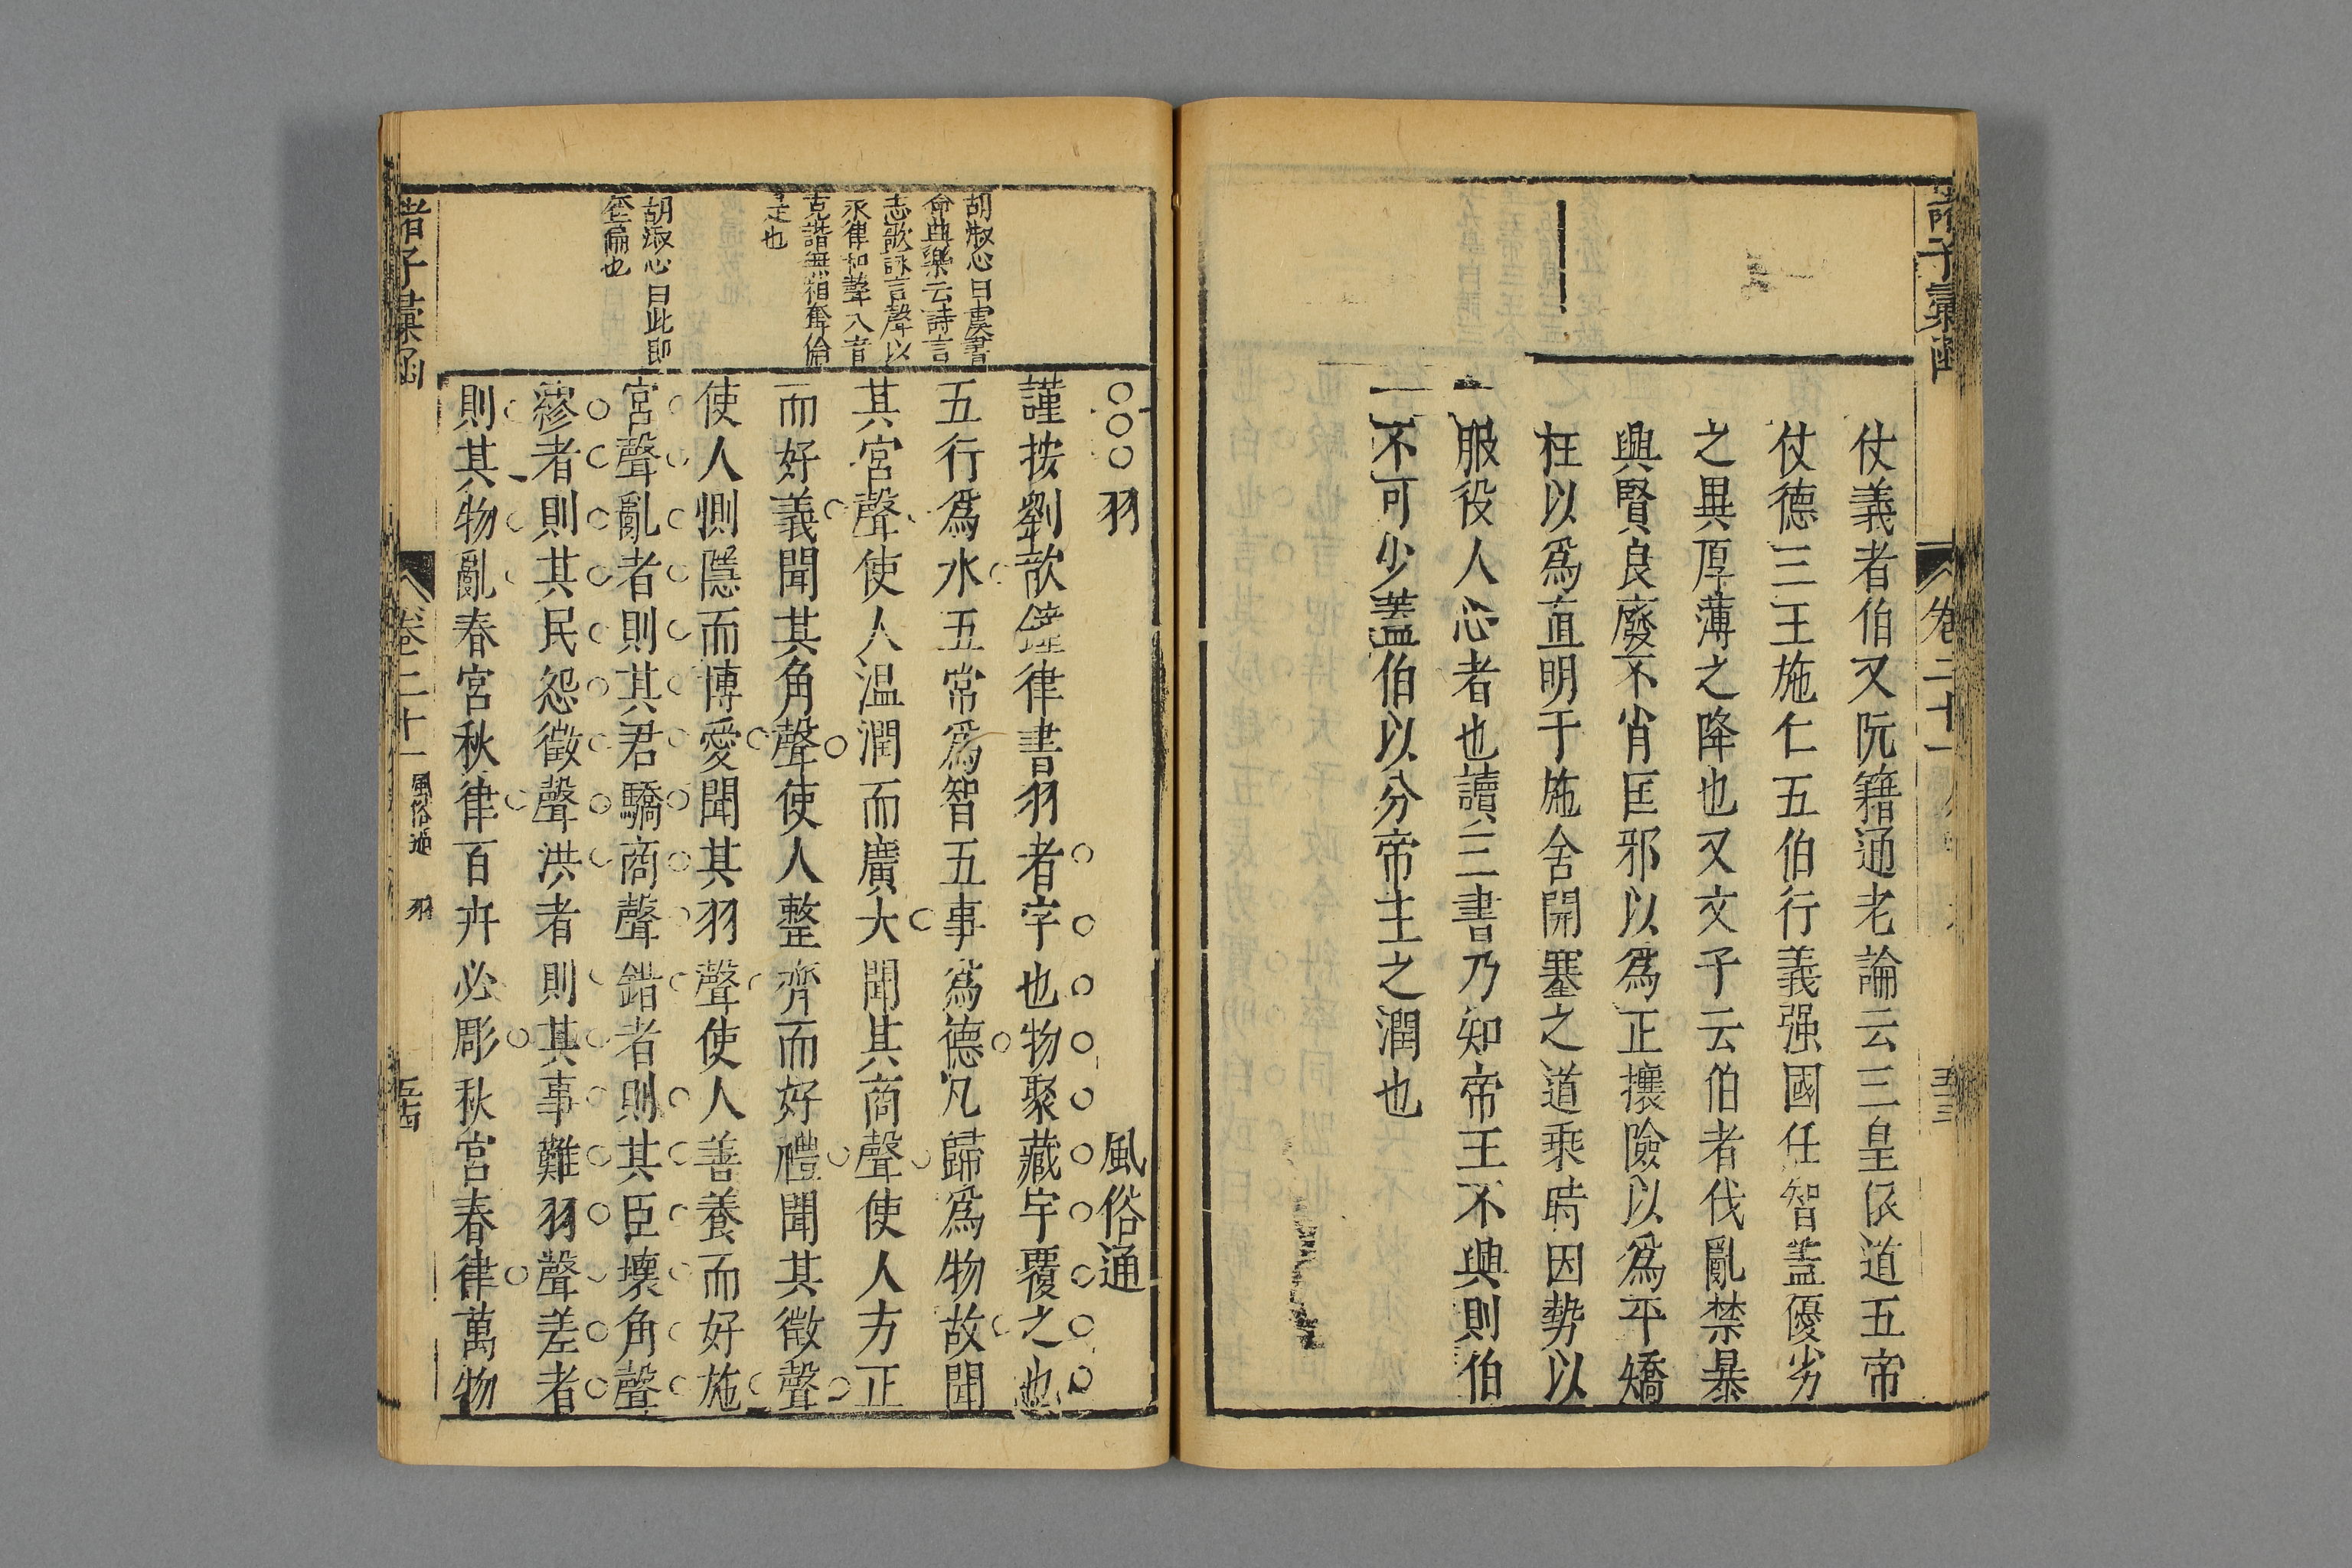 諸子彙函
卷二十一
五十三
仗義者伯又阮籍通老論云三皇依道五帝
仗德三王施仁五伯行義强國任智蓋優劣
之異厚薄之降也又文子云伯者伐亂禁暴
興賢良廢不肖匡邪以爲正攘險以爲平矯
枉以爲直明于施舍開塞之道乘時因勢以
服役人心者也讀三書乃知帝王不興則伯
不可少蓋伯以分帝王之潤也
○○○羽
風俗通
謹按劉歆鐘律書羽者宇也物聚藏宇覆之也
五行爲水五常爲智五事爲德凡歸爲物故聞
其宮聲使人温潤而廣大聞其商聲使人方正
而好義聞其角聲使人整齊而好禮聞其徵聲
使人惻隱而博愛聞其羽聲使人善養而好施
宮聲亂者則其君驕商聲錯者則其臣壞角聲
繆者則其民怨徵聲洪者則其事難羽聲差者
則其物亂春宮秋律百卉必彫秋宮春律萬物
胡淑心曰虞書
命典樂云詩言
志歌詠言聲以
永律和聲八音
克諧無相奪倫
是也
胡淑心曰此即
諸子彙函
卷二十一
風俗通 羽
五十四